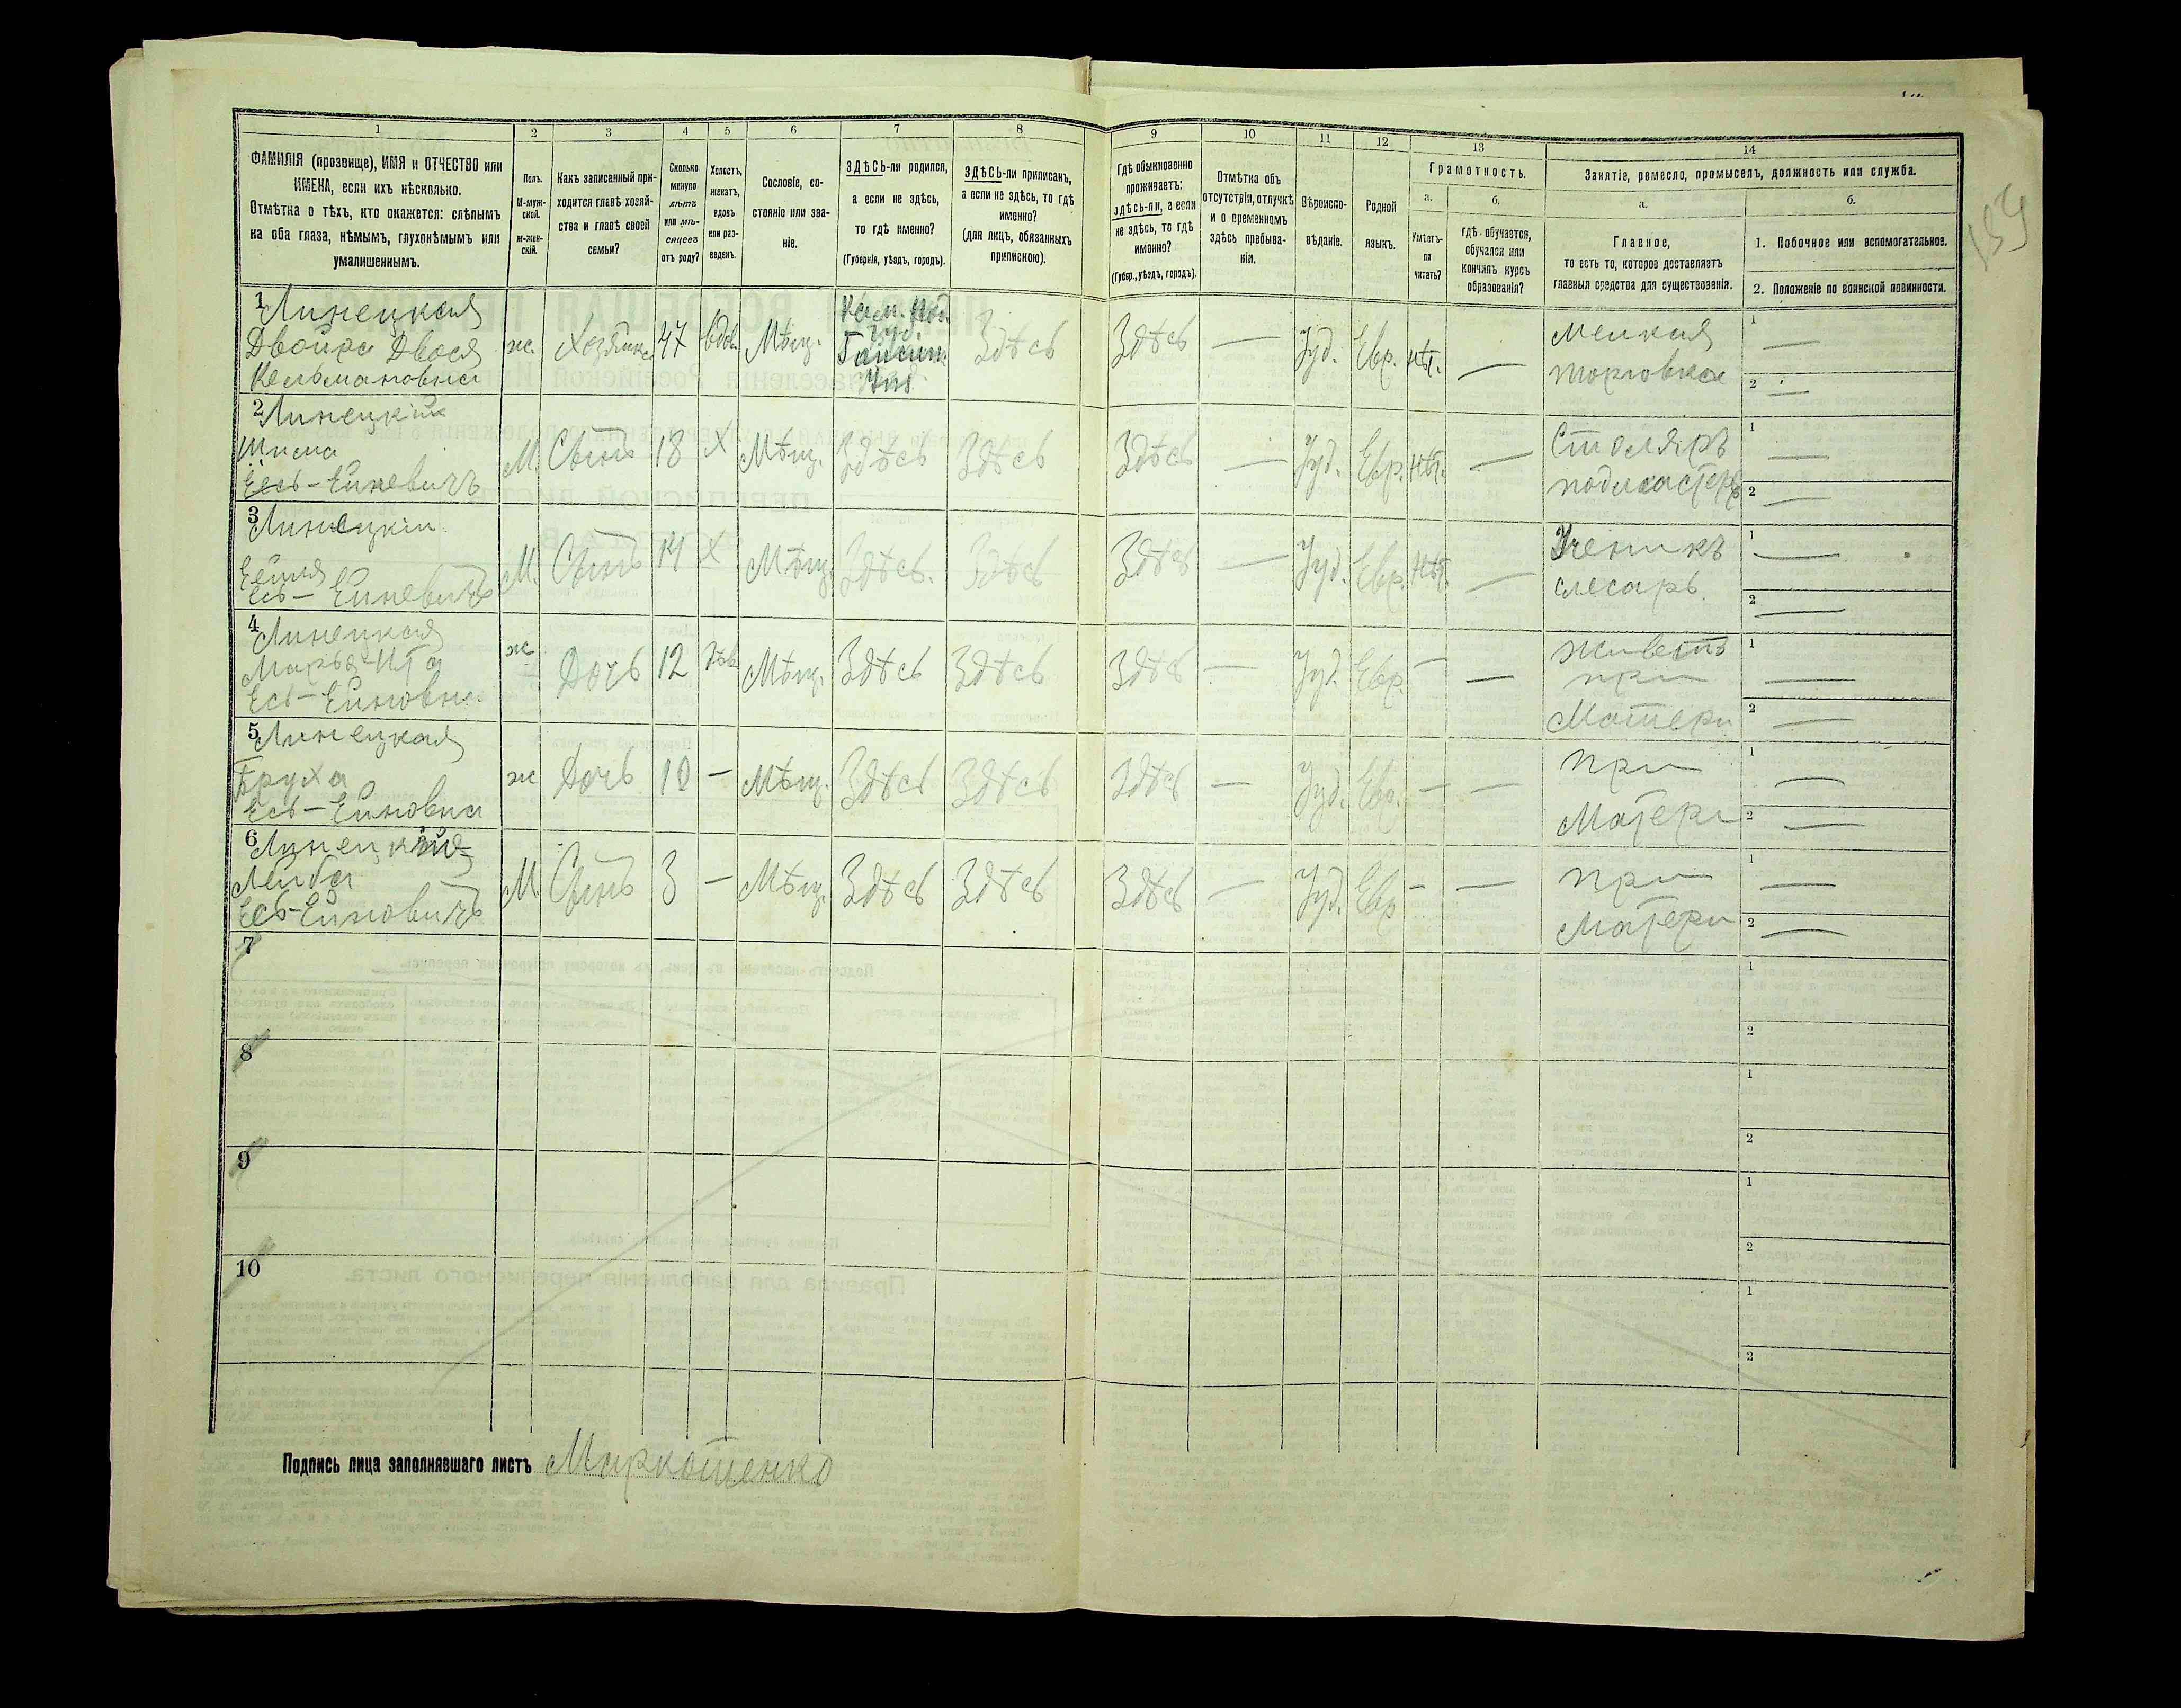 1
2
3
4
5
6
7
8
9
10
11
12
13
14
ФАМИЛІЯ (прозвище), ИМЯ и ОТЧЕСТВО или
ИМЕНА, если ихъ нѣсколько.
Отмѣтка о тѣхъ, кто окажется: слѣпымъ
на оба глаза, нѣмымъ, глухонѣмымъ или
умалишеннымъ.
Полъ.
М-муж-
ской.
Ж-жен-
скій.
Какъ записанный при-
ходится главѣ хозяй-
ства и главѣ своей
семьи?
Сколько
минуло
лѣтъ
или мѣ-
сяцевъ
отъ роду?
Холостъ,
женатъ,
вдовъ
или раз-
веденъ.
Сословіе, со-
стояніе или зва-
ніе.
ЗДѢСЬ-ли родился,
а если не здѣсь,
то гдѣ именно?
(Губернія, уѣздъ, городъ).
ЗДѢСЬ-ли приписанъ,
а если не здѣсь, то гдѣ
именно?
(для лицъ, обязанныхъ
припискою).
Гдѣ обыкновенно
проживаетъ:
здѣсь-ли, а если
не здѣсь, то гдѣ
именно?
(Губер., уѣздъ, городъ).
Отмѣтка объ
отсутствіи, отлучкѣ
и о временномъ
здѣсь пребыва-
ніи.
Вѣроиспо-
вѣданіе.
Родной
языкъ.
Грамотность.
а.
Умѣетъ-
ли
читать?
б.
гдѣ обучается,
обучался или
кончилъ курсъ
образованія?
Занятіе, ремесло, промыселъ, должность или служба.
а.
Главное,
то есть то, которое доставляетъ
главныя средства для существованія.
б.
1. Побочное или вспомогательное.
2. Положеніе по воинской повинности.
1 Линецкая
Двойра Двося
Кельмановна
ж. Хозяйка 47 вдов. Мѣщ.
Кам. Под.
губ.
Гайсин.
Здѣсь Здѣсь — Іуд. Евр. нѣт. —
Мелкая
торговка
1 —
2 —
2 Линецкій
Шима
Есь-Ейневичъ
М. Сынъ 18 Х Мѣщ. Здѣсь Здѣсь Здѣсь — Іуд. Евр. нѣт. —
Столяръ
подмастерь
1 —
2 —
3 Линецкій
Есь-Ейневичъ
М. Сынъ 14 Х Мѣщ. Здѣсь. Здѣсь Здѣсь — Іуд. Евр. нѣт. —
Ученикъ
слесарь.
1 —
2 —
4 Линецкая
Марья-Ита
Есь-Ейновна.
ж Дочь 12 дѣв Мѣщ. Здѣсь Здѣсь Здѣсь — Іуд. Евр. — —
живетъ
при
Матери
1 —
2 —
5 Линецкая
Бруха
Есь-Ейновна
ж Дочь 10 — Мѣщ. Здѣсь Здѣсь Здѣсь — Іуд. Евр. — —
при
Матери
1 —
2 —
6 Линецкій
Лейба
Есь-Ейновичъ
М. Сынъ 3 — Мѣщ. Здѣсь Здѣсь Здѣсь — Іуд. Евр — —
при
Матери
1 —
2 —
7
1
2
8
1
2
9
1
2
10
1
2
Подпись лица заполнявшаго листъ Маркотенко